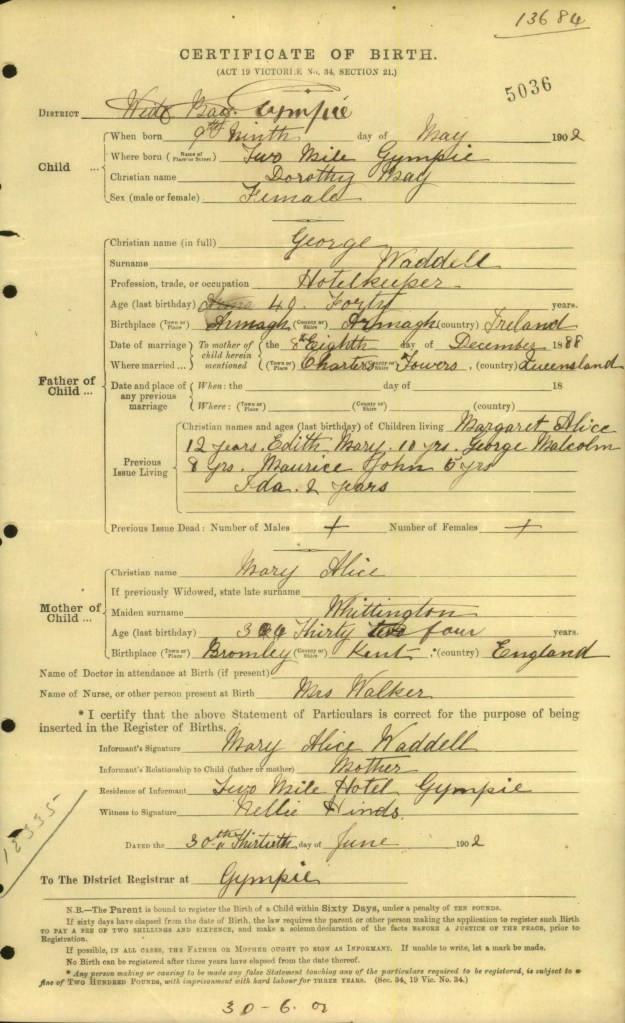 13684
CERTIFICATE OF BIRTH.
(ACT 19 VICTORIÆ No. 34, SECTION 21.)
5036
DISTRICT Wide Bay Gympie
When born 9th Ninth day of May 1902
Child ... Where born (Name of Place or Street) Two Mile Gympie
Christian name Dorothy May
Sex (male or female) Female
Christian name (in full) George
Surname Waddell
Profession, trade, or occupation Hotelkeeper
Age (last birthday) 40 Forty years.
Birthplace (Town or Place) Armagh (County or Shire) Armagh (country) Ireland
Date of marriage To mother of child herein mentioned the 8th Eighth day of December 1888
Where married ... (Town or Place) Charters Towers, (country) Queensland
Father of Child ...
Date and place of any previous marriage When: the day of 18
Where: (Town or Place) (County or Shire) (country)
Previous Issue Living Christian names and ages (last birthday) of Children living Margaret Alice
12 years. Edith Mary. 10 yrs. George Malcolm
8 yrs. Maurice John 5 yrs
Ida. 2 years
Previous Issue Dead: Number of Males + Number of Females +
Christian name Mary Alice
If previously Widowed, state late surname
Mother of Child ... Maiden surname Whittington
Age (last birthday) 34 Thirty two four years.
Birthplace (Town or Place) Bromley (County or Shire) Kent. (country) England
Name of Doctor in attendance at Birth (if present)
Name of Nurse, or other person present at Birth Mrs Walker
* I certify that the above Statement of Particulars is correct for the purpose of being
inserted in the Register of Births.
Informant's Signature Mary Alice Waddell
Informant's Relationship to Child (father or mother) Mother
Residence of Informant Two Mile Hotel Gympie
Witness to Signature Nellie Hinds.
DATED the 30th Thirtieth day of June 1902
To The District Registrar at Gympie
N.B.—The Parent is bound to register the Birth of a Child within Sixty Days, under a penalty of TEN POUNDS.
If sixty days have elapsed from the date of Birth, the law requires the parent or other person making the application to register such Birth
TO PAY A FEE OF TWO SHILLINGS AND SIXPENCE, and make a solemn declaration of the facts BEFORE A JUSTICE OF THE PEACE, prior to
Registration.
If possible, IN ALL CASES, THE FATHER OR MOTHER OUGHT TO SIGN AS INFORMANT. If unable to write, let a mark be made.
No Birth can be registered after three years have elapsed from the date thereof.
* Any person making or causing to be made any false Statement touching any of the particulars required to be registered, is subject to a
fine of TWO HUNDRED POUNDS, with imprisonment with hard labour for THREE YEARS. (Sec. 34, 19 Vic. No. 34.)
30-6.02